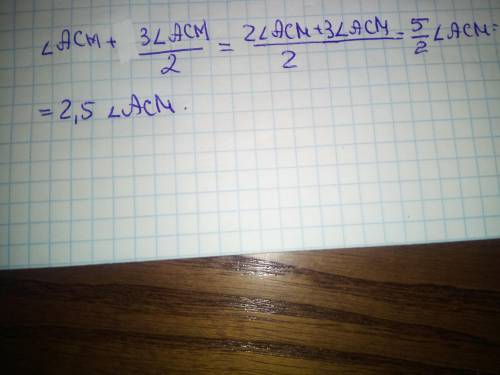 ∠ACM + 3∠ACM/2 = 2∠ACM+3∠ACM/2 = 5/2 ∠ACM =
= 2,5 ∠ACM.